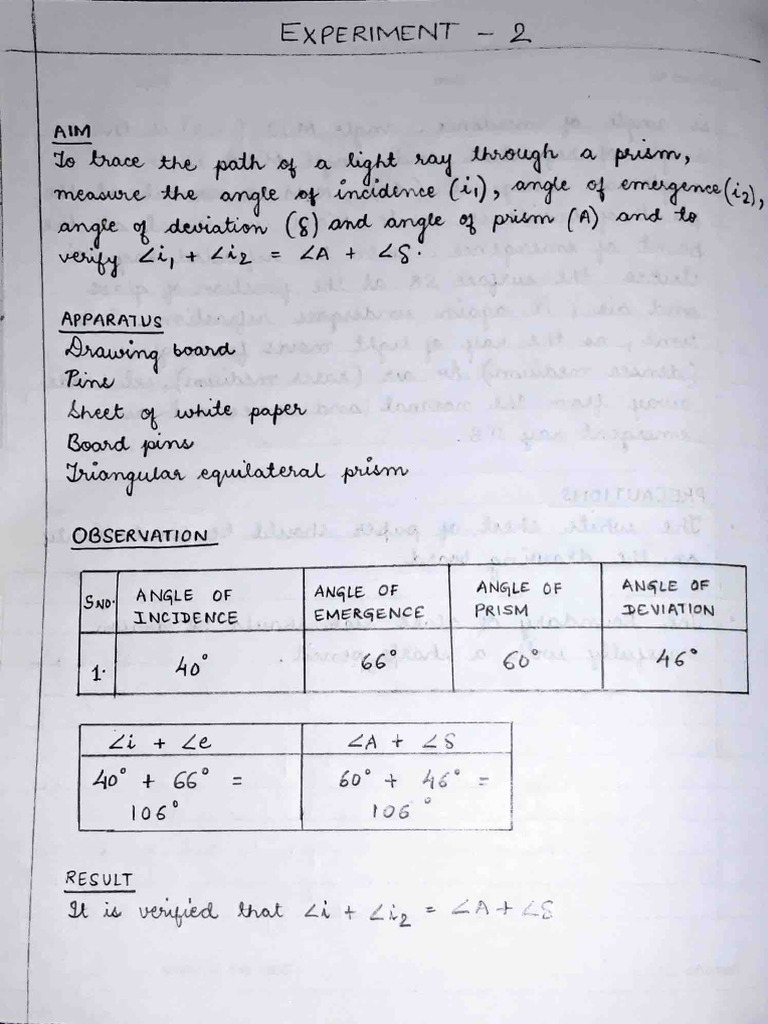 EXPERIMENT - 2
AIM
To trace the path of a light ray through a prism,
measure the angle of incidence (i1), angle of emergence (i2),
angle of deviation (δ) and angle of prism (A) and to
verify ∠i1 + ∠i2 = ∠A + ∠δ.
APPARATUS
Drawing board
Pins
Sheet of white paper
Board pins
Triangular equilateral prism
OBSERVATION
S.NO. ANGLE OF INCIDENCE ANGLE OF EMERGENCE ANGLE OF PRISM ANGLE OF DEVIATION
1. 40° 66° 60° 46°
∠i + ∠e ∠A + ∠δ
40° + 66° = 60° + 46° =
106° 106°
RESULT
It is verified that ∠i + ∠i2 = ∠A + ∠δ